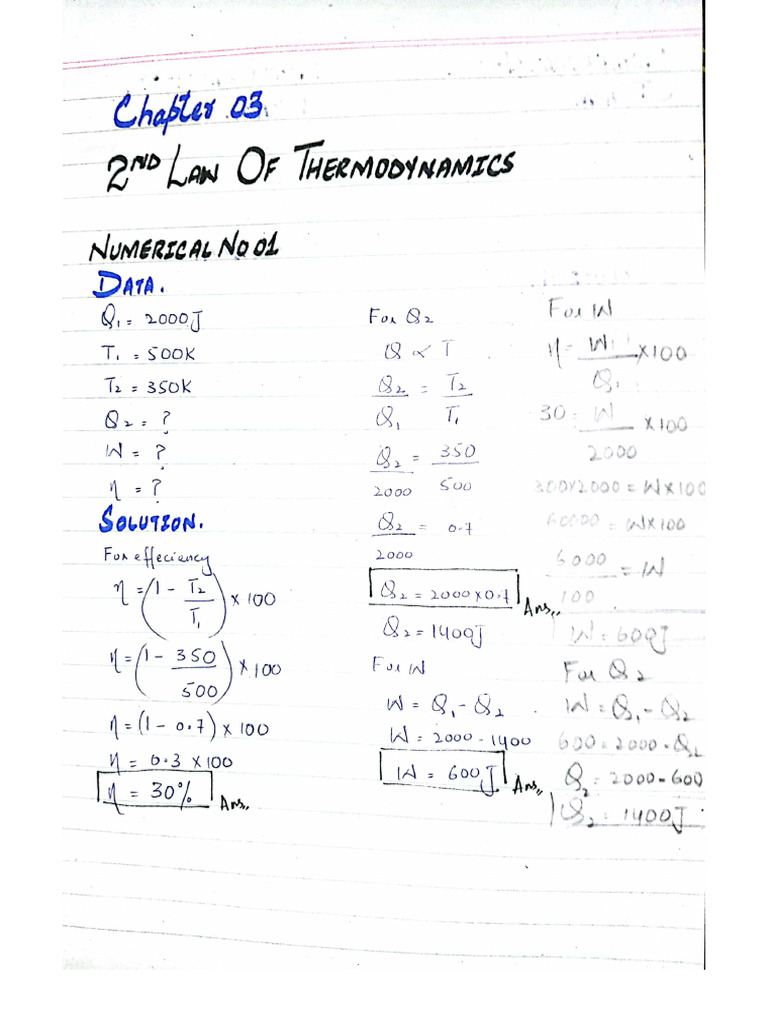 Chapter 03.
2ND LAW OF THERMODYNAMICS
NUMERICAL NO 01
DATA.
Q₁ = 2000J
T₁ = 500K
T₂ = 350K
Q₂ = ?
W = ?
η = ?
SOLUTION.
For effeciency
η = (1 - T₂/T₁) × 100
η = (1 - 350/500) × 100
η = (1 - 0.7) × 100
η = 0.3 × 100
η = 30% Ans,,
For Q₂
Q ∝ T
Q₂/Q₁ = T₂/T₁
Q₂/2000 = 350/500
Q₂/2000 = 0.7
Q₂ = 2000 × 0.7 Ans,,
Q₂ = 1400J
For W
W = Q₁ - Q₂
W = 2000 - 1400
W = 600J Ans,,
For W
η = W/Q₁ × 100
30 = W/2000 × 100
= W × 100
60000 = W × 100
6000/100 = W
W = 600J
For Q₂
W = Q₁ - Q₂
600 = 2000 - Q₂
Q₂ = 2000 - 600
Q₂ = 1400J